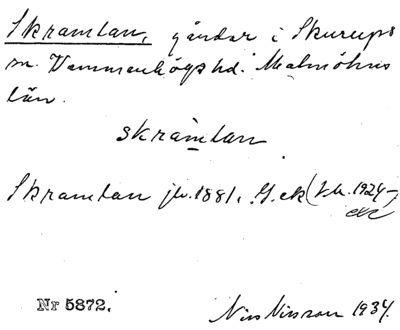 Skramlan, gårdar i Skurups
sn. Vemmenhögs hd. Malmöhus
län.
skràmlan
Skramlan jb. 1881. G.ek (J.b. 1924-
Nr 5872.
Nils Nilsson 1934.